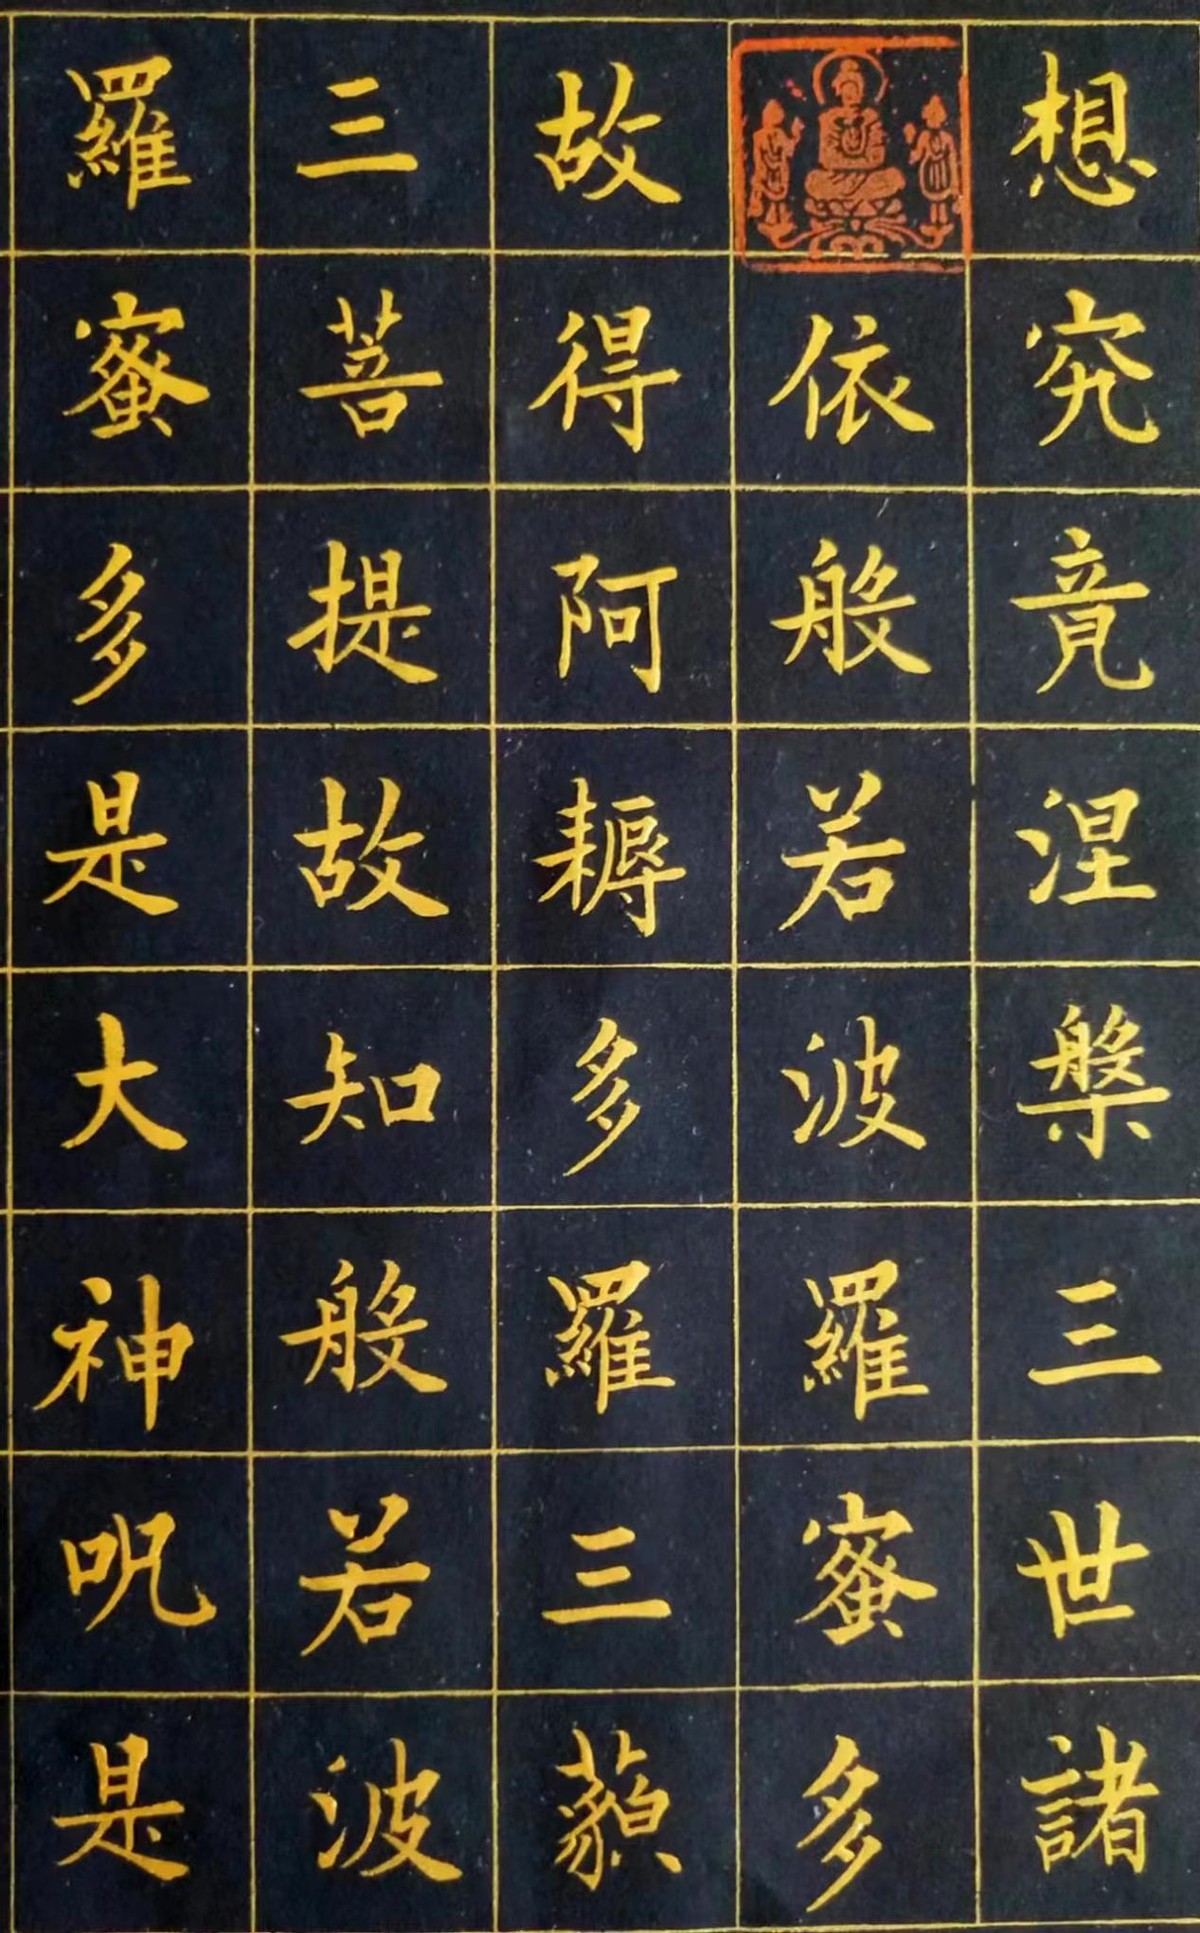 想究竟涅槃三世諸
依般若波羅蜜多
故得阿耨多羅三藐
三菩提故知般若波
羅蜜多是大神呪是